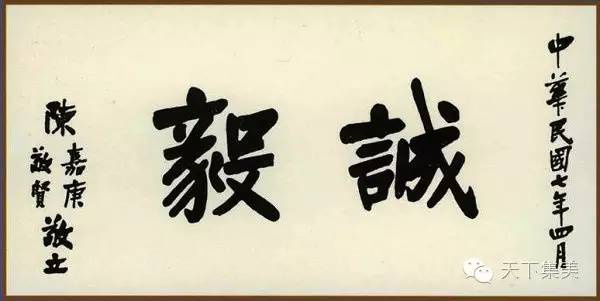 中華民國七年四月
誠毅
陳嘉庚
敬賢
敬立
天下集美